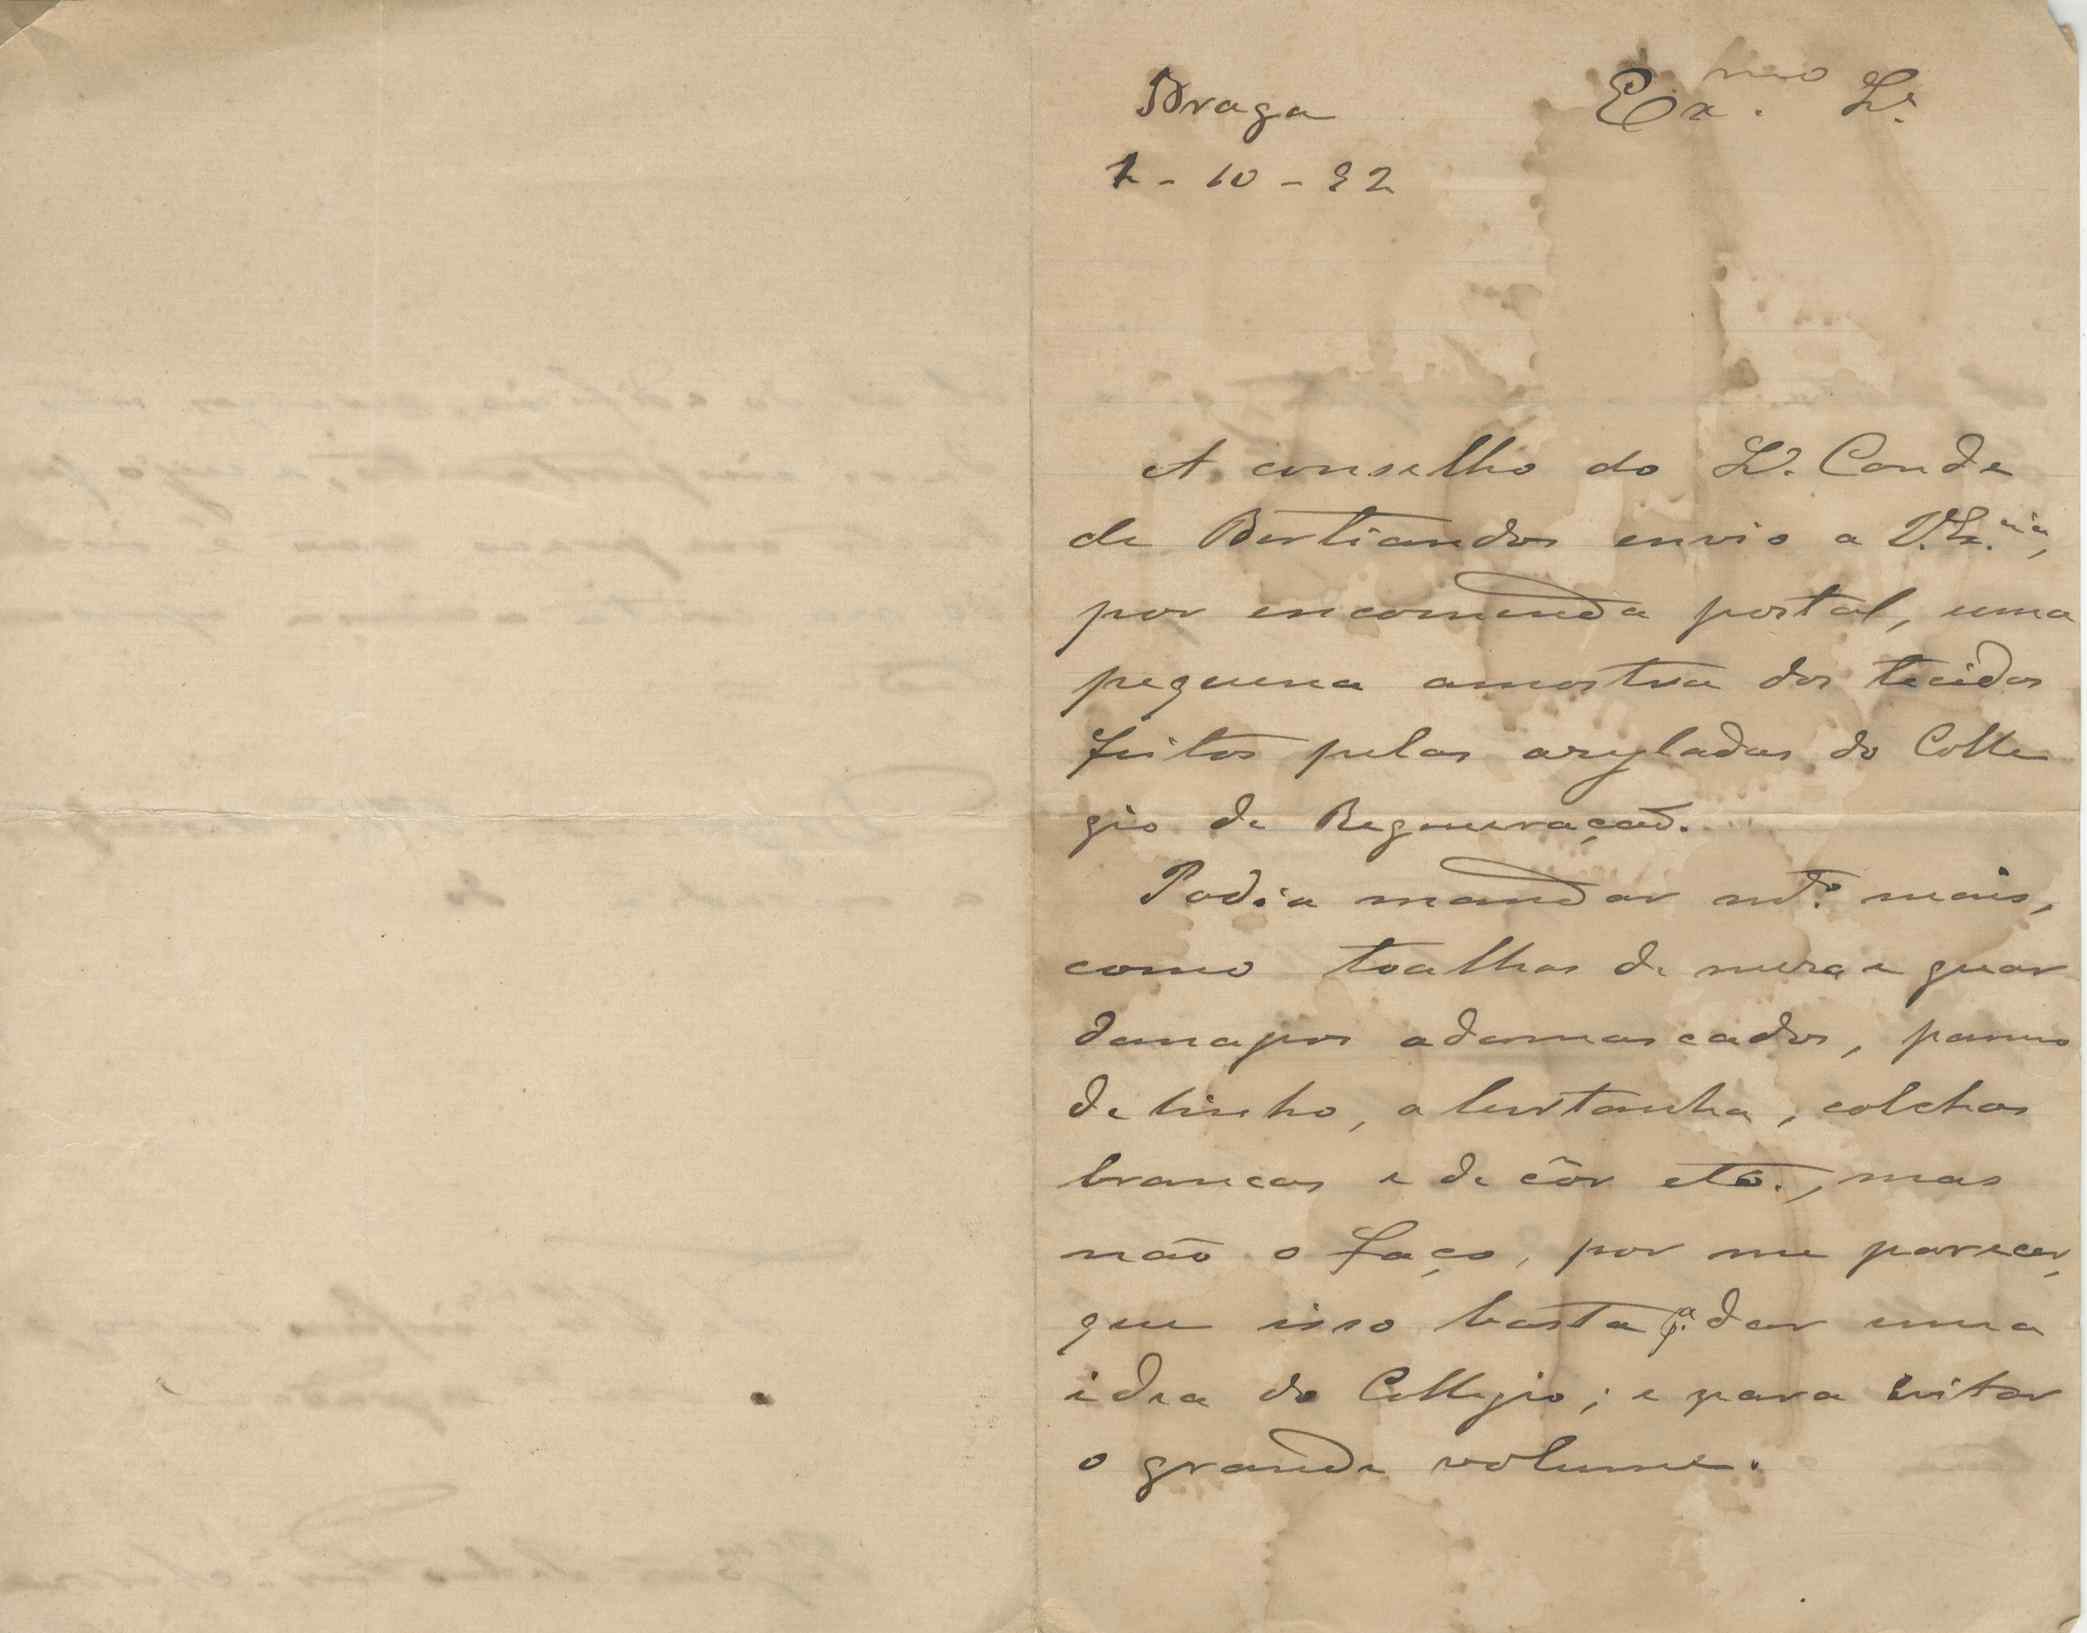 Braga
Ex.mo Sr.
1-10-92
A conselho do Sr. Conde
de Bertiandos envio a V. Ex.cia,
por encomenda postal, uma
pequena amostra dos tecidos
feitos pelas asyladas do Colle
gio de Regeneração.
Podia mandar mt.o mais,
como toalhas de mesa e guar
danapos adamascados, panno
de linho, a bretanha, colchas
brancas e de côr etc., mas
não o faço, por me parecer,
que isso basta p.a dar uma
idea do Collegio; e para evitar
o grande volume.